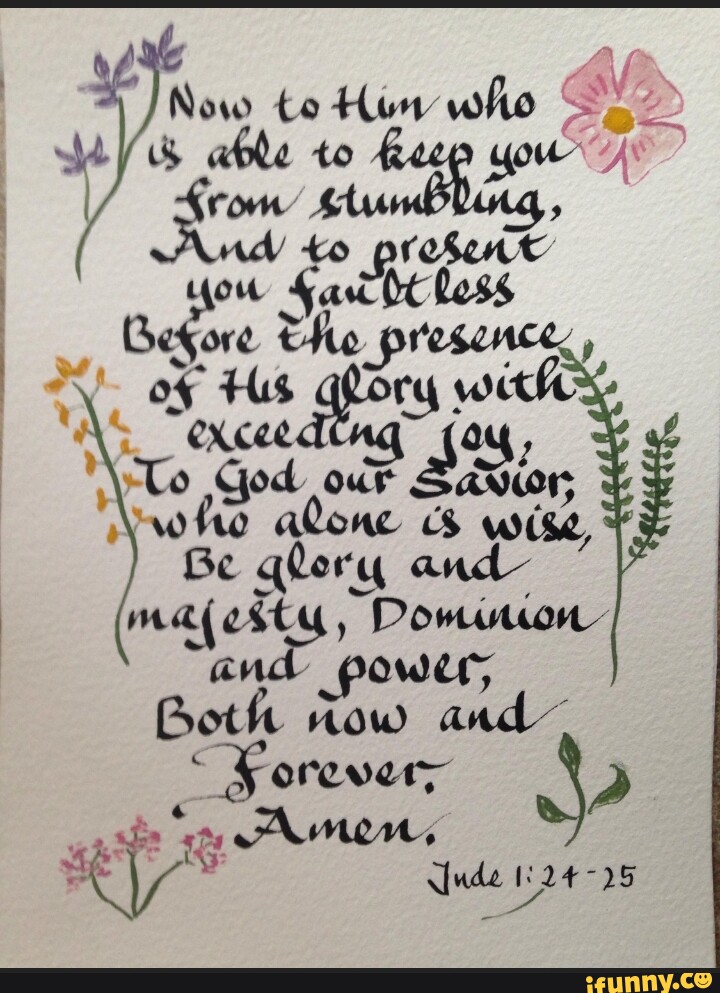 Now to Him who
is able to keep you
from stumbling,
And to present
you faultless
Before the presence
of His glory with
exceeding joy,
To God our Savior,
who alone is wise,
Be glory and
majesty, Dominion
and power,
Both now and
Forever.
Amen.
Jude 1:24-25
ifunny.co